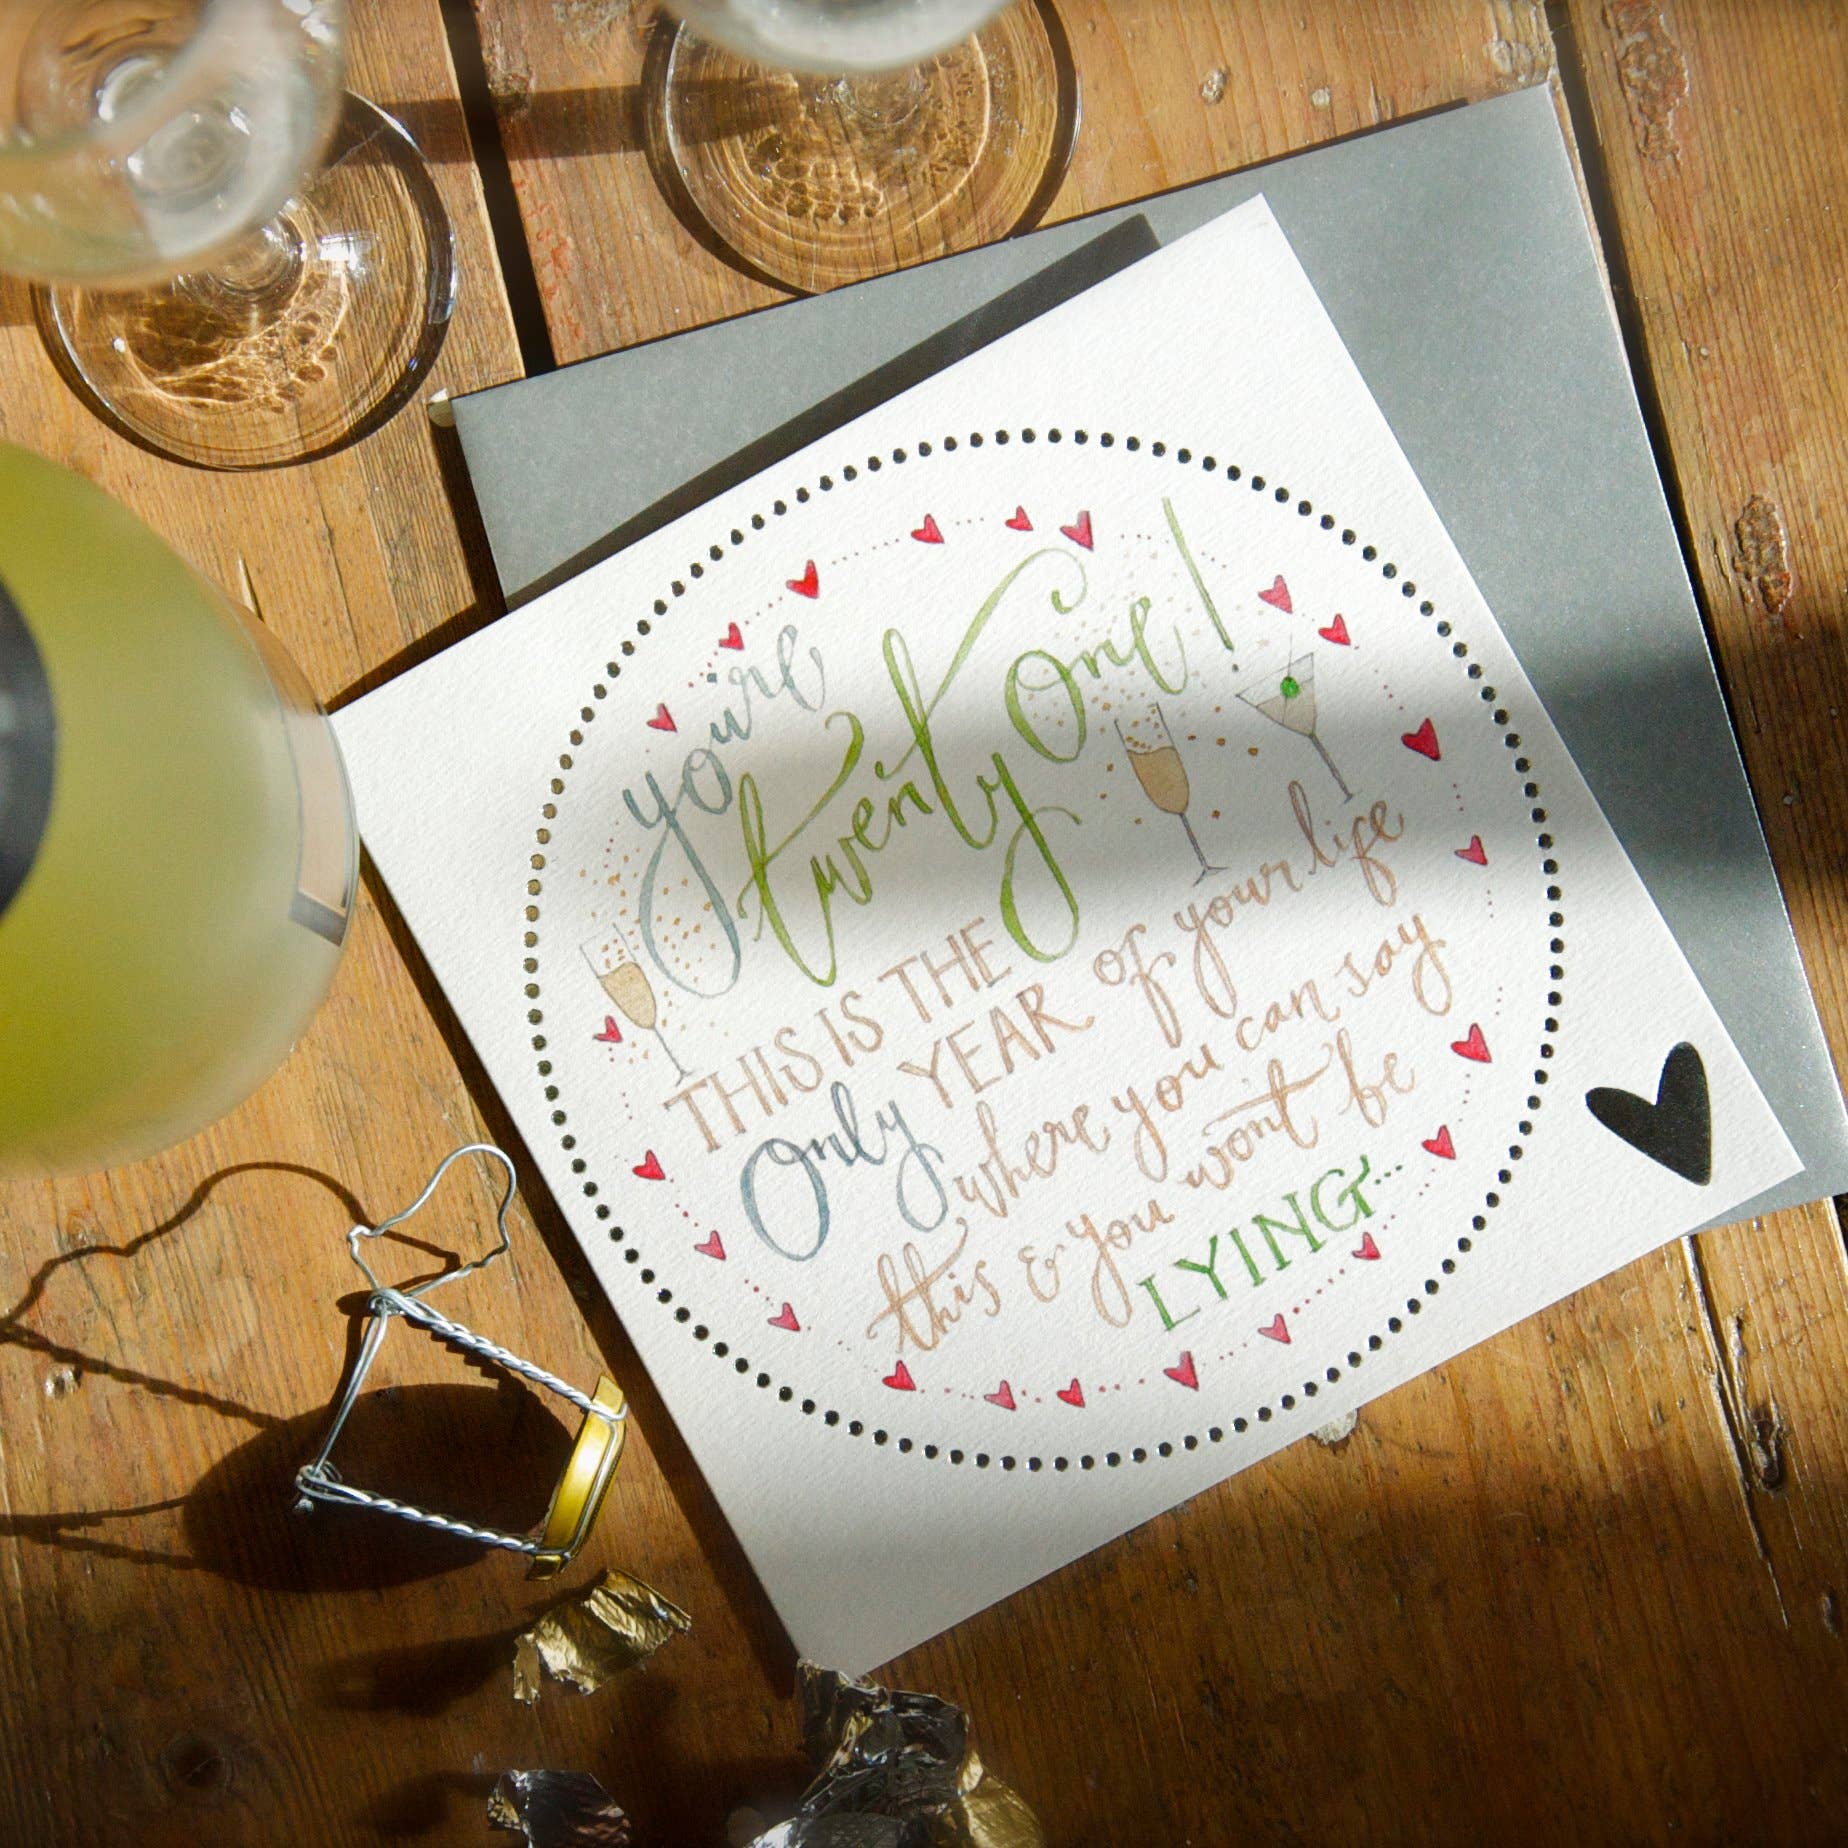 you're
twenty One!
THIS IS THE
Only YEAR of your life
where you can say
this & you won't be
LYING...